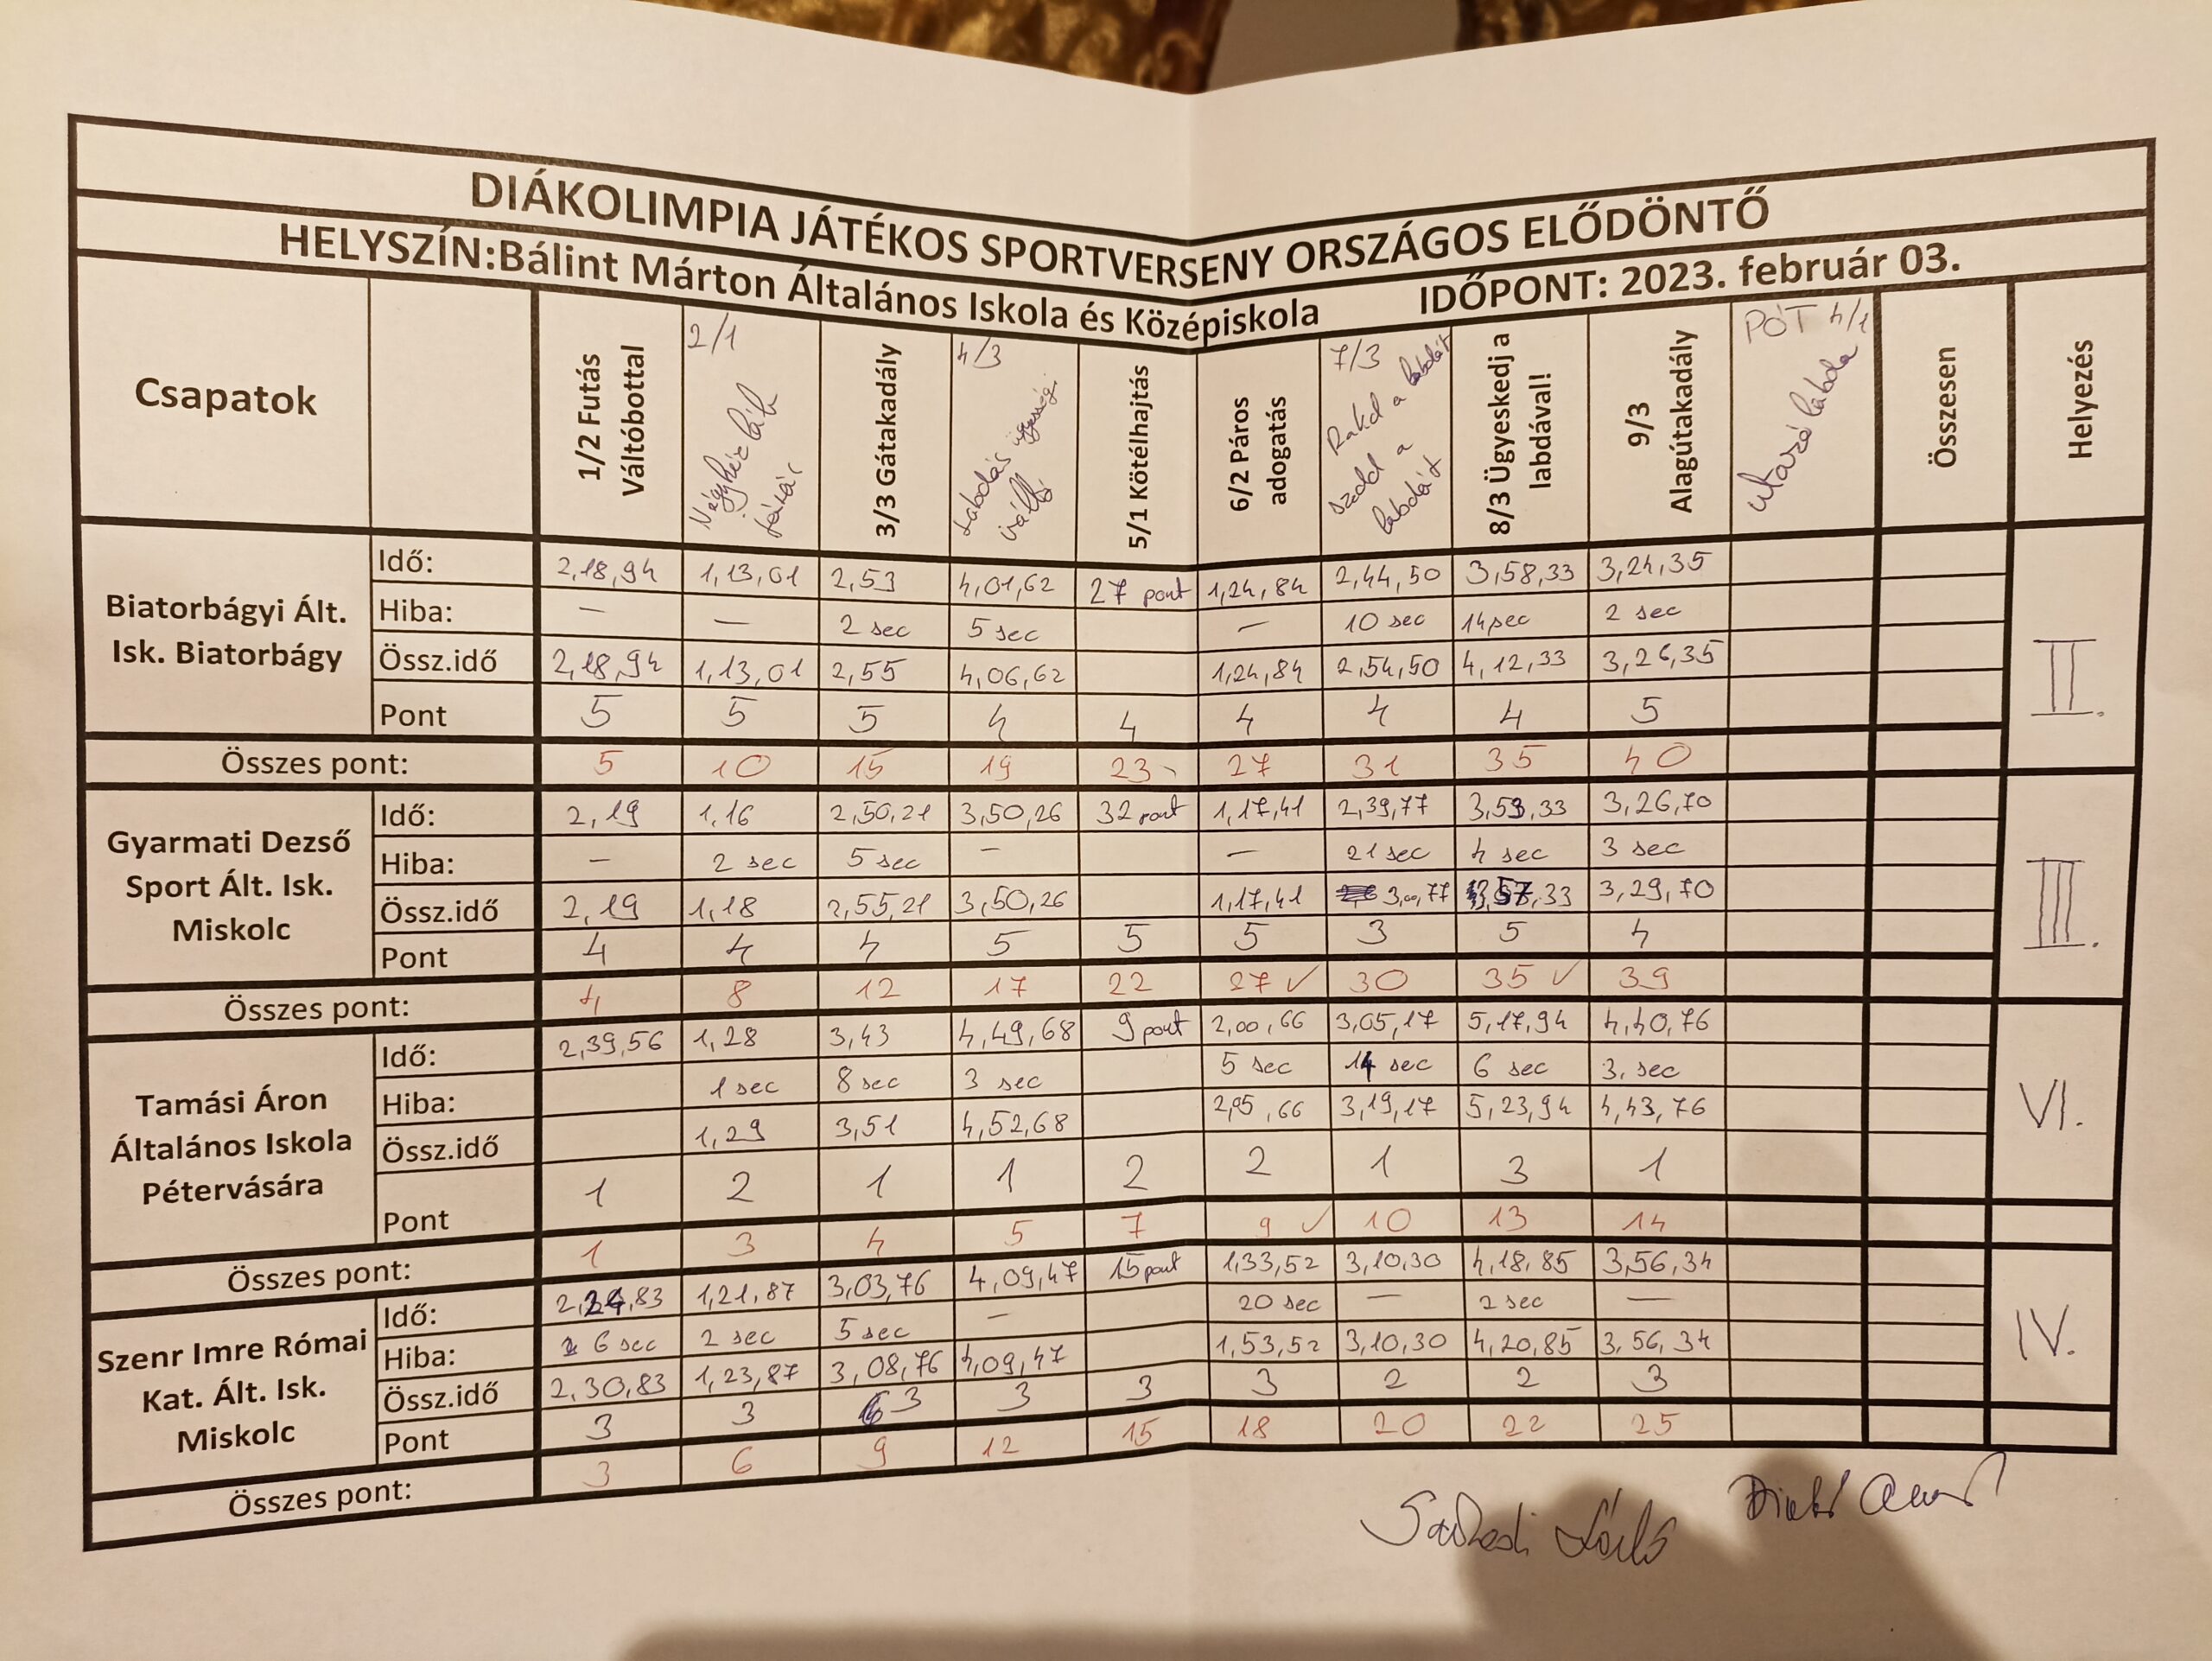 DIÁKOLIMPIA JÁTÉKOS SPORTVERSENY ORSZÁGOS ELŐDÖNTŐ
HELYSZÍN:Bálint Márton Általános Iskola és Középiskola IDŐPONT: 2023. február 03.
Csapatok
1/2 Futás
Váltóbottal
2/1
Négykézláb
járás
3/3 Gátakadály
4/3
Labdás ügyességi
váltó
5/1 Kötélhajtás
6/2 Páros
adogatás
7/3
Rakd a labdát
szedd a
labdát
8/3 Ügyeskedj a
labdával!
9/3
Alagútakadály
PÓT 4/1
utazó labda
Összesen
Helyezés
Biatorbágyi Ált.
Isk. Biatorbágy
Idő: 2,18,94 1,13,01 2,53 4,01,62 27 pont 1,24,84 2,44,50 3,58,33 3,24,35
Hiba: — — 2 sec 5 sec — 10 sec 14 sec 2 sec
Össz.idő 2,18,94 1,13,01 2,55 4,06,62 1,24,84 2,54,50 4,12,33 3,26,35
Pont 5 5 5 4 4 4 4 4 5
II.
Összes pont: 5 10 15 19 23 27 31 35 40
Gyarmati Dezső
Sport Ált. Isk.
Miskolc
Idő: 2,19 1,16 2,50,21 3,50,26 32 pont 1,17,41 2,39,77 3,53,33 3,26,70
Hiba: — 2 sec 5 sec — — 21 sec 4 sec 3 sec
Össz.idő 2,19 1,18 2,55,21 3,50,26 1,17,41 3,00,77 3,57,33 3,29,70
Pont 4 4 4 5 5 5 3 5 4
III.
Összes pont: 4 8 12 17 22 27 ✓ 30 35 ✓ 39
Tamási Áron
Általános Iskola
Pétervására
Idő: 2,39,56 1,28 3,43 4,49,68 9 pont 2,00,66 3,05,17 5,17,94 4,40,76
Hiba: 1 sec 8 sec 3 sec 5 sec 14 sec 6 sec 3. sec
Össz.idő 1,29 3,51 4,52,68 2,05,66 3,19,17 5,23,94 4,43,76
Pont 1 2 1 1 2 2 1 3 1
VI.
Összes pont: 1 3 4 5 7 9 ✓ 10 13 14
Szenr Imre Római
Kat. Ált. Isk.
Miskolc
Idő: 2,24,83 1,21,87 3,03,76 4,09,47 15 pont 1,33,52 3,10,30 4,18,85 3,56,34
Hiba: 6 sec 2 sec 5 sec — 20 sec — 2 sec —
Össz.idő 2,30,83 1,23,87 3,08,76 4,09,47 1,53,52 3,10,30 4,20,85 3,56,34
Pont 3 3 3 3 3 3 2 2 3
IV.
Összes pont: 3 6 9 12 15 18 20 22 25